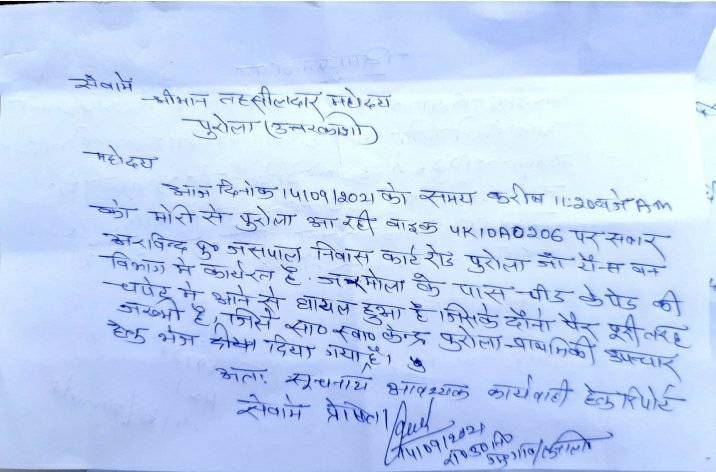 सेवामें
श्रीमान तहसीलदार महोदय
पुरोला (उत्तरकाशी)
महोदय
आज दिनांक 14/09/2021 को समय करीब 11:20 बजे AM
को मोरी से पुरोला आ रही बाइक UK10A0206 पर सवार
अरविन्द पु० जसपाल निवास कोर्ट रोड पुरोला जो टौन्स वन
विभाग मे कार्यरत है. जरमोला के पास चीड़ के पेड की
चपेट मे आने से घायल हुआ है। जिसके दोनो पैर पूरी तरह
जख्मी है, जिसे सा० स्वा० केन्द्र पुरोला प्राथमिकी उपचार
हेतु भेज दीया दिया गया है।
अतः सूचनार्थ आवश्यक कार्यवाही हेतु रिपोर्ट
सेवामे प्रेषित।
14/09/2021
रा०उ०नि०